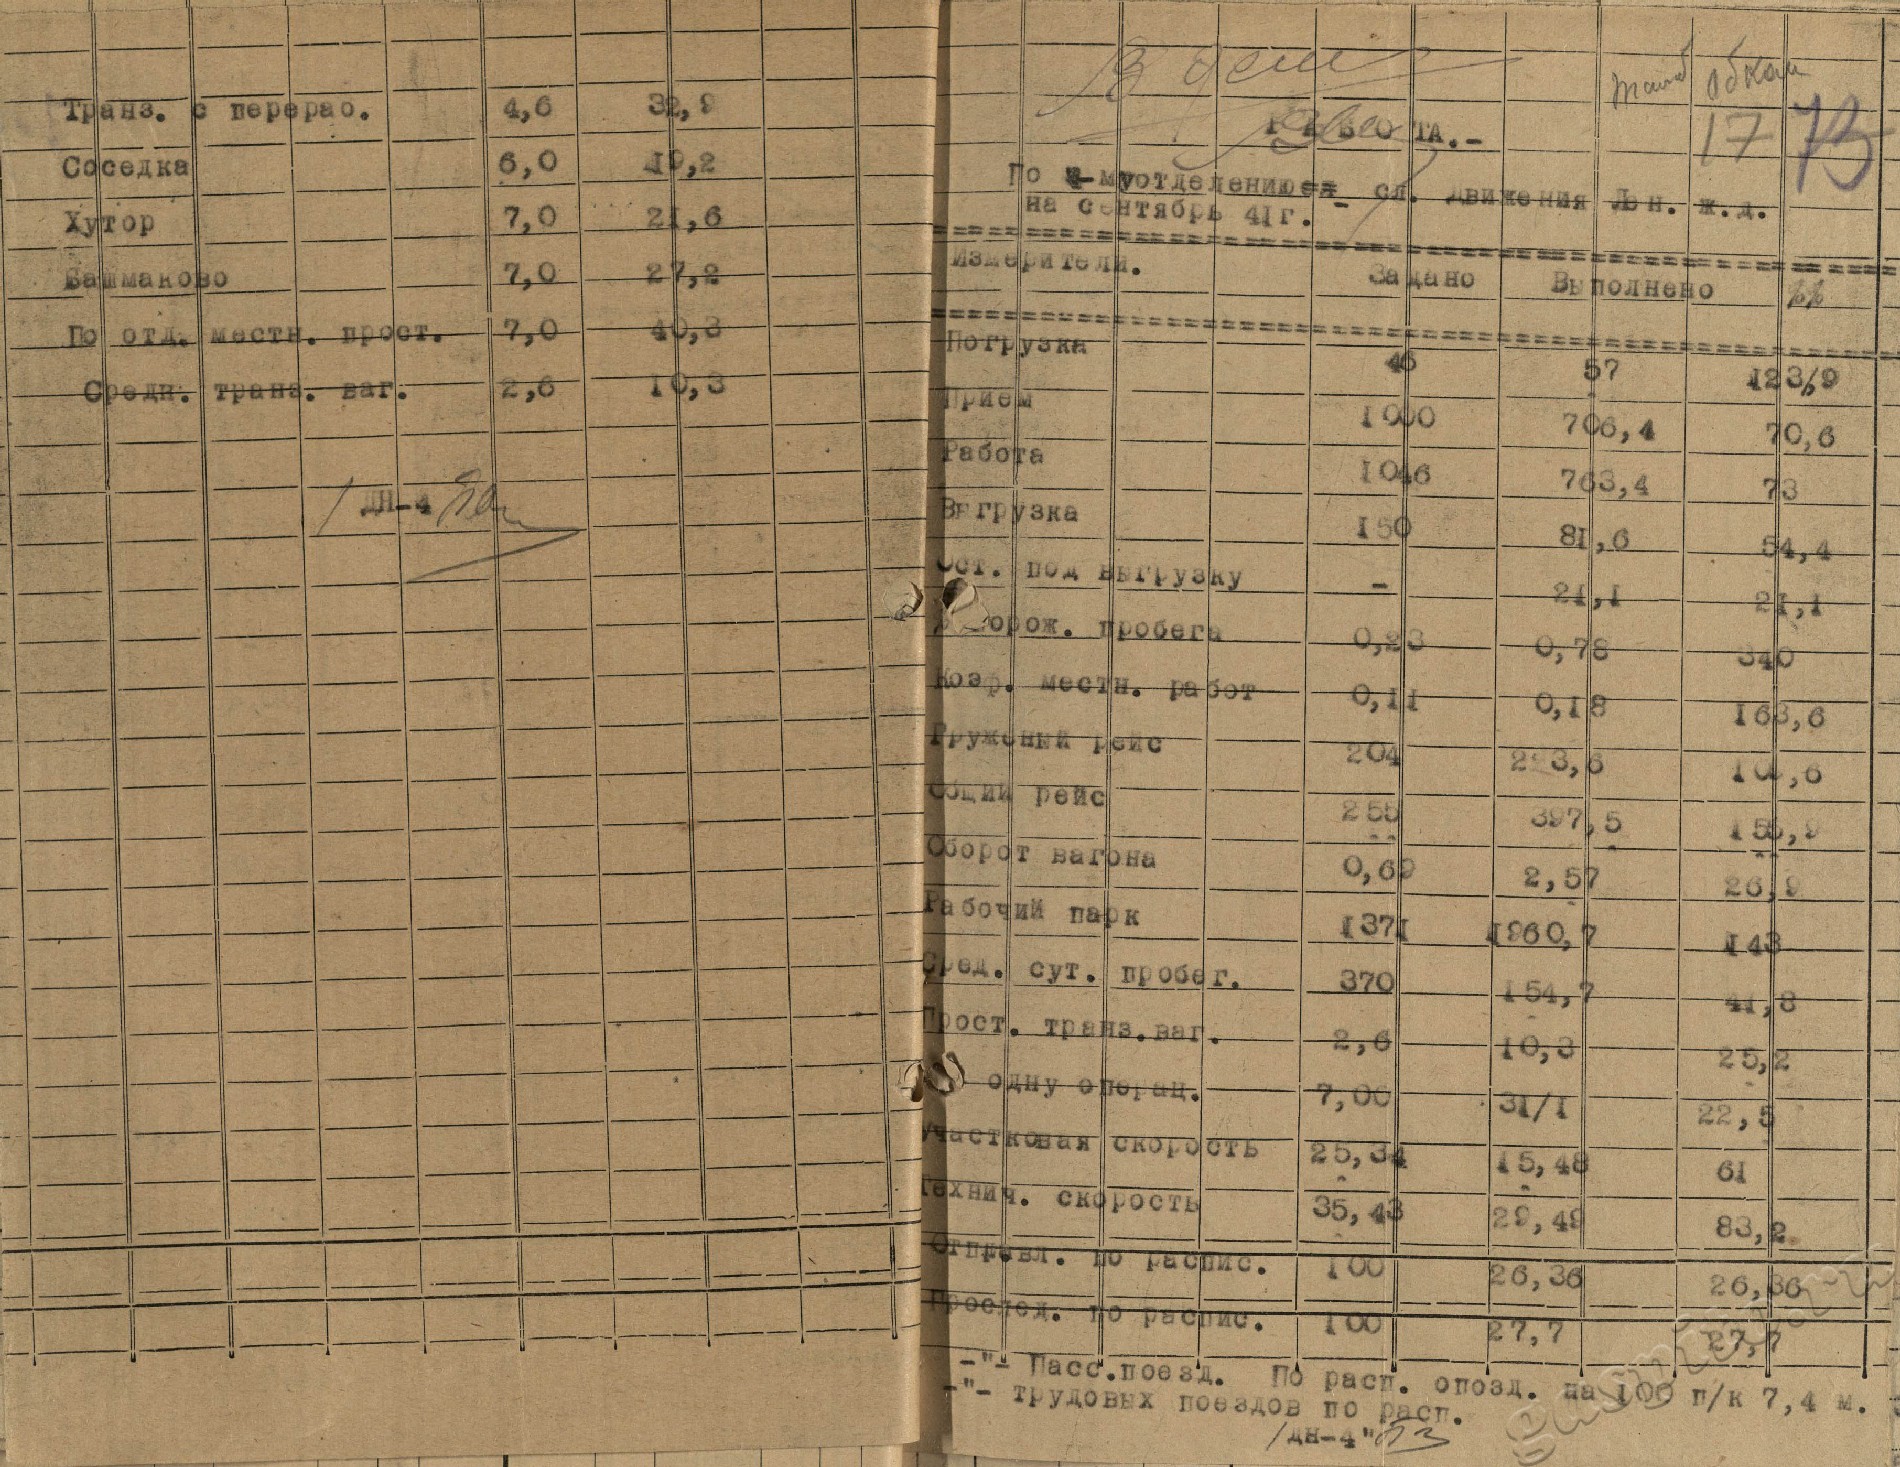 Транз. с перераб. 4,6 32,9
Соседка 6,0 19,2
Хутор 7,0 21,6
Башмаково 7,0 27,2
По отд. местн. прост. 7,0 40,3
Средн. транз. ваг. 2,6 10,3
ДН-4
В дело
17 73
РАБОТА.-
По 4-муотделению сл. движения Лен. ж.д.
на сентябрь 41г.
Измерители. Задано Выполнено %%
Погрузка 46 57 123,9
Прием 1000 706,4 70,6
Работа 1046 763,4 73
Выгрузка 150 81,6 54,4
Ост. под выгрузку - 21,1 21,1
порож. пробега 0,23 0,78 340
Коэф. местн. работ 0,11 0,18 163,6
Груженый рейс 204
Общий рейс 255 397,5 155,9
Оборот вагона 0,69 2,57 26,9
Рабочий парк 1371 1960,7 143
Сред. сут. пробег. 370 154,7 41,8
Прост. транз.ваг. 2,6 10,3 25,2
одну операц. 7,00 31/1 22,5
Участковая скорость 25,34 15,48 61
Технич. скорость 35,43 29,49 83,2
Отправл. по распис. 100 26,36 26,36
Прослед. по распис. 100 27,7 27,7
-"- Пасс.поезд. По расп. опозд. на 100 п/к 7,4 м.
-"- трудовых поездов по расп.
/ДН-4"